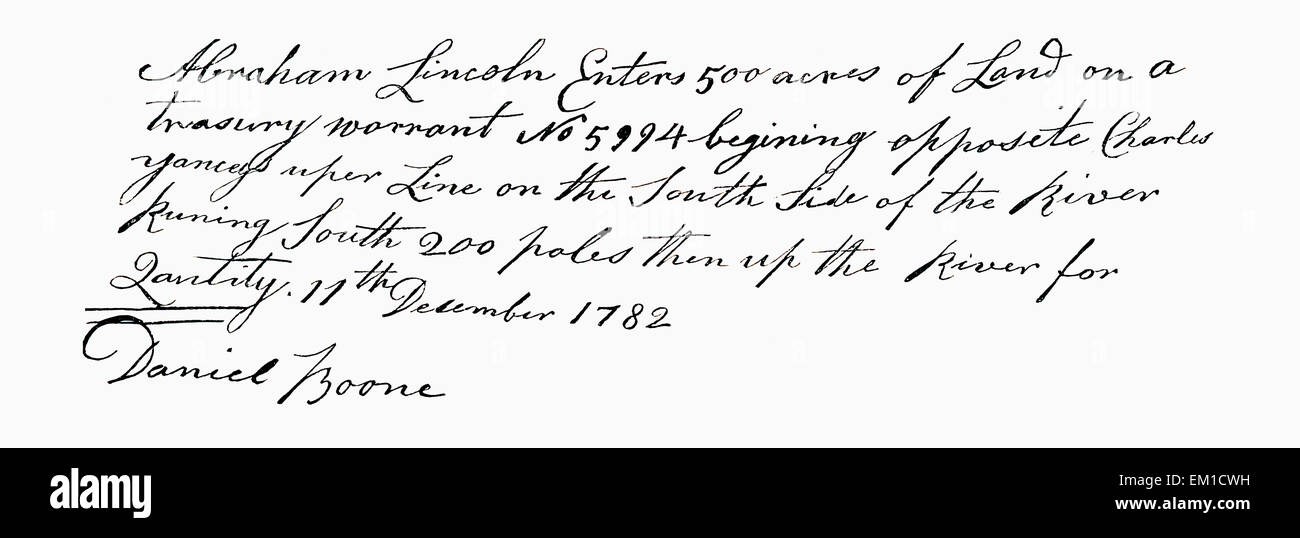 Abraham Lincoln Enters 500 acres of Land on a
treasury warrant No 5994 begining opposete Charles
yanceys uper Line on the South Side of the River
Runing South 200 poles then up the River for
Qantity. 11th Desember 1782
Daniel Boone
alamy
Image ID: EM1CWH
www.alamy.com